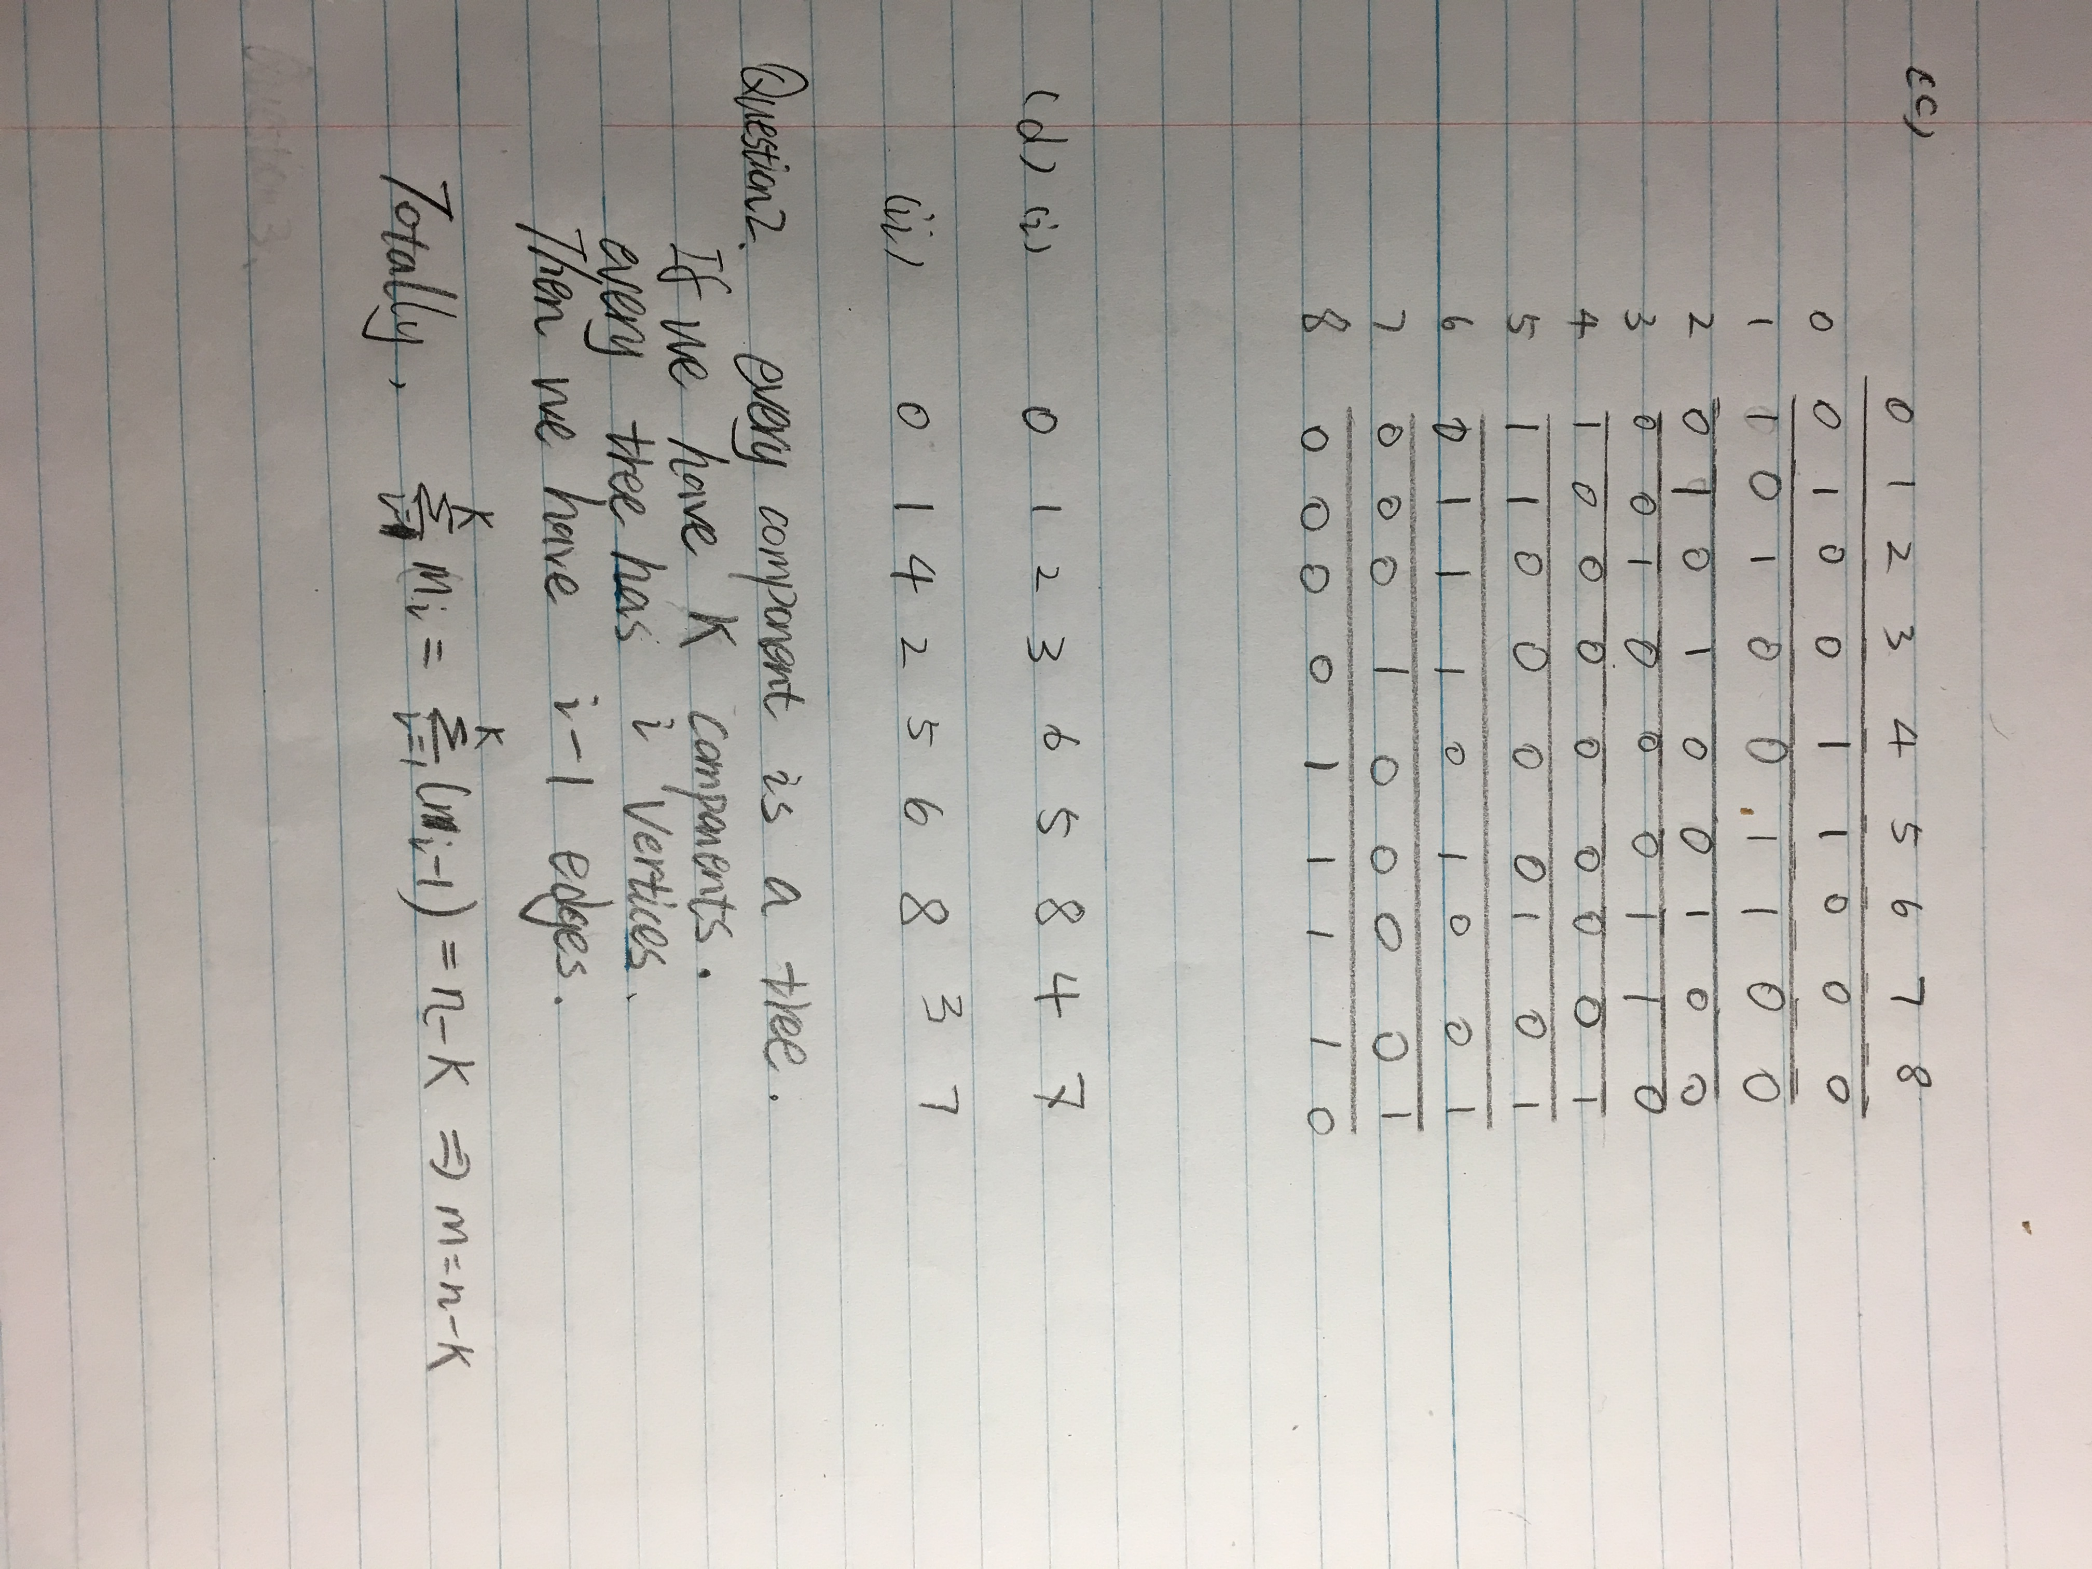 (c)
0 1 2 3 4 5 6 7 8
0 0 1 0 0 1 1 0 0 0
1 1 0 1 0 0 1 1 0 0
2 0 1 0 1 0 0 1 0 0
3 0 0 1 0 0 0 1 1 0
4 1 0 0 0 0 0 0 0 1
5 1 1 0 0 0 0 1 0 1
6 0 1 1 1 0 1 0 0 1
7 0 0 0 1 0 0 0 0 1
8 0 0 0 0 1 1 1 1 0
(d) (i) 0 1 2 3 6 5 8 4 7
(ii) 0 1 4 2 5 6 8 3 7
Question2. every component is a tree.
If we have K components.
every tree has i vertices.
Then we have i-1 edges.
Totally, Σ_{i=1}^{K} m_i = Σ_{i=1}^{K} (n_i-1) = n-K ⇒ m=n-K
Question 3.